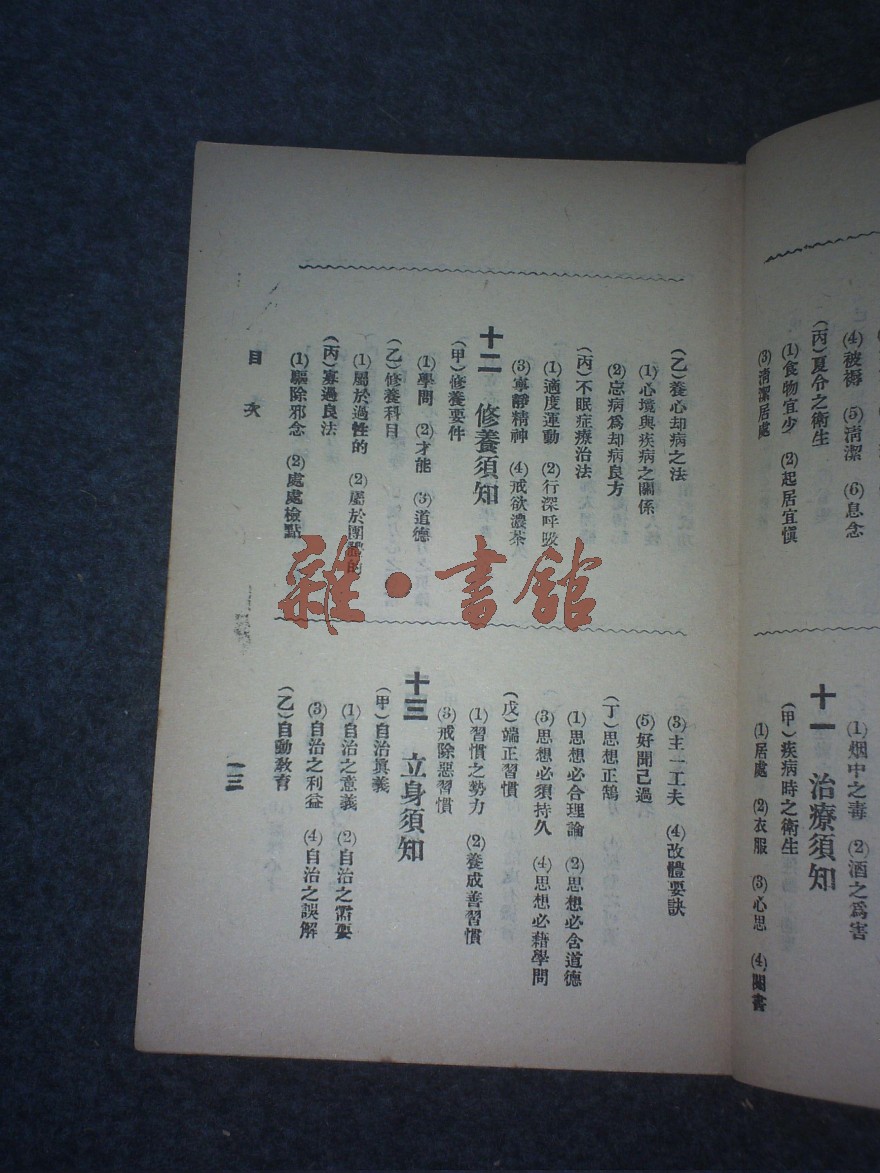 (4)被褥 (5)清潔 (6)息念
(丙)夏令之衛生
(1)食物宜少 (2)起居宜愼
(3)清潔居處
(1)烟中之毒 (2)酒之爲害
十一 治療須知
(甲)疾病時之衛生
(1)居處 (2)衣服 (3)心思 (4)閱書
(乙)養心却病之法
(1)心境與疾病之關係
(2)忘病爲却病良方
(丙)不眠症療治法
(1)適度運動 (2)行深呼吸
(3)寧靜精神 (4)戒欲濃茶
十二 修養須知
(甲)修養要件
(1)學問 (2)才能 (3)道德
(乙)修養科目
(1)屬於過性的 (2)屬於團體的
(丙)寡過良法
(1)驅除邪念 (2)處處檢點
(3)主一工夫 (4)改體要訣
(5)好聞己過
(丁)思想正鵠
(1)思想必合理論 (2)思想必含道德
(3)思想必須持久 (4)思想必藉學問
(戊)端正習慣
(1)習慣之勢力 (2)養成善習慣
(3)戒除惡習慣
十三 立身須知
(甲)自治眞義
(1)自治之意義 (2)自治之需要
(3)自治之利益 (4)自治之誤解
(乙)自動敎育
目次
一三
雜·書館